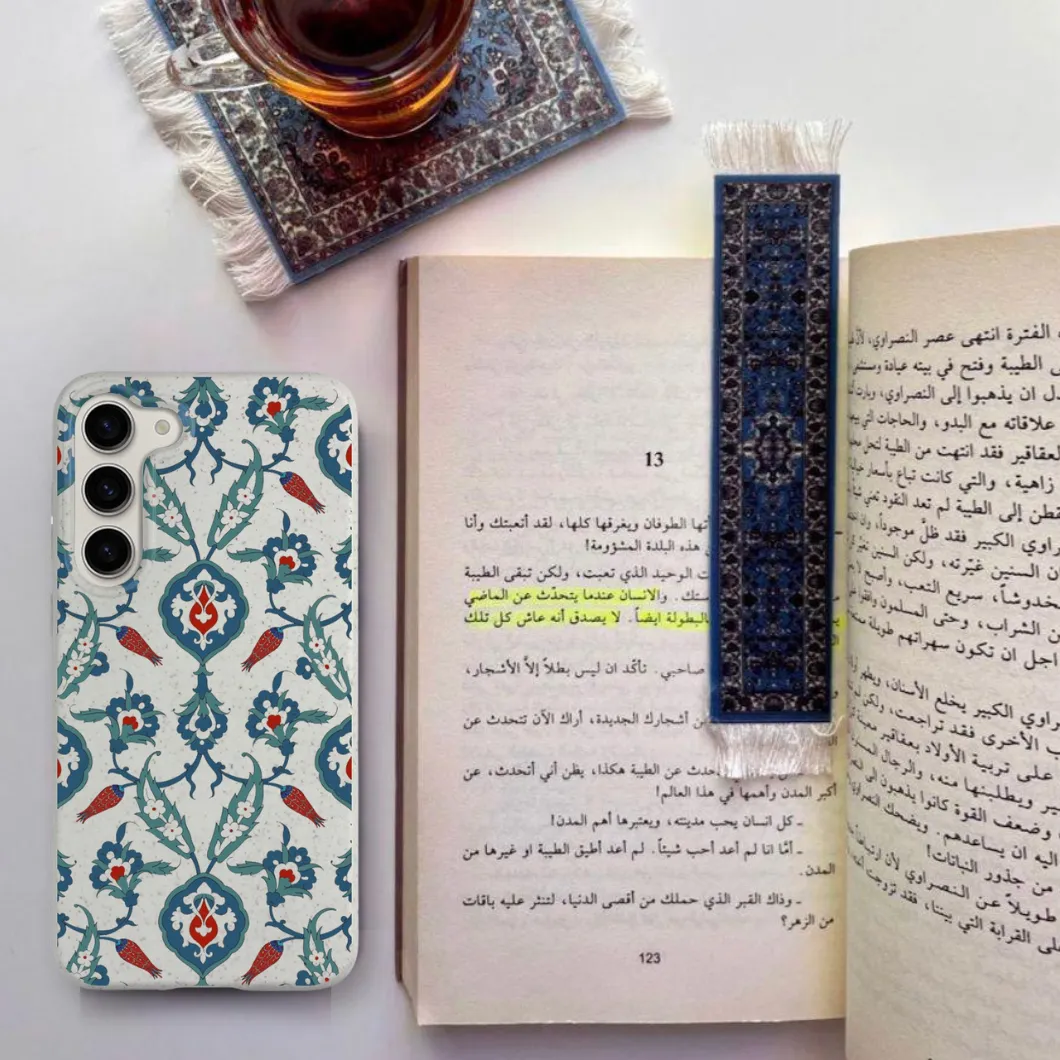 13
أتها الطوفان ويغرقها كلها، لقد أتعبتك وأنا
هذه البلدة المشؤومة!
ت الوحيد الذي تعبت، ولكن تبقى الطيبة
ستك. والانسان عندما يتحدّث عن الماضي
بالبطولة ايضاً. لا يصدق أنه عاش كل تلك
صاحبي. تأكّد ان ليس بطلاً إلاَّ الأشجار،
ن أشجارك الجديدة، أراك الآن تتحدث عن
حدث عن الطيبة هكذا، يظن أني أتحدث، عن
أكبر المدن وأهمها في هذا العالم!
ـ كل انسان يحب مدينته، ويعتبرها أهم المدن!
ـ أمَّا انا لم أعد أحب شيئاً. لم أعد أطيق الطيبة او غيرها من
المدن.
ـ وذاك القبر الذي حملك من أقصى الدنيا، لتنثر عليه باقات
من الزهر؟
123
الفترة انتهى عصر النصراوي،
الطيبة وفتح في بيته عيادة
ان يذهبوا إلى النصراوي،
علاقاته مع البدو، والحاجات التي
العقاقير فقد انتهت من الطيبة لتحل
زاهية، والتي كانت تباع بأسعار
إلى الطيبة لم تعد النقود تعني
اوي الكبير فقد ظلَّ موجوداً، وان
السنين غيّرته، ولكن السنين تغير
خدوشاً، سريع التعب، وأصبح لا
الشراب، وحتى المسلمون
اجل ان تكون سهراتهم طويلة
اوي الكبير يخلع الأسنان،
الأخرى فقد تراجعت، ولكن
على تربية الأولاد بعقاقير معينة
ويطلبنها منه، والرجال
وضعف القوة كانوا يذهبون الى
اليه ان يساعدهم. ويضحك النصراوي
من جذور النباتات!
طويلاً عن النصراوي لأن
لى القرابة التي بيننا، فقد تزوجت